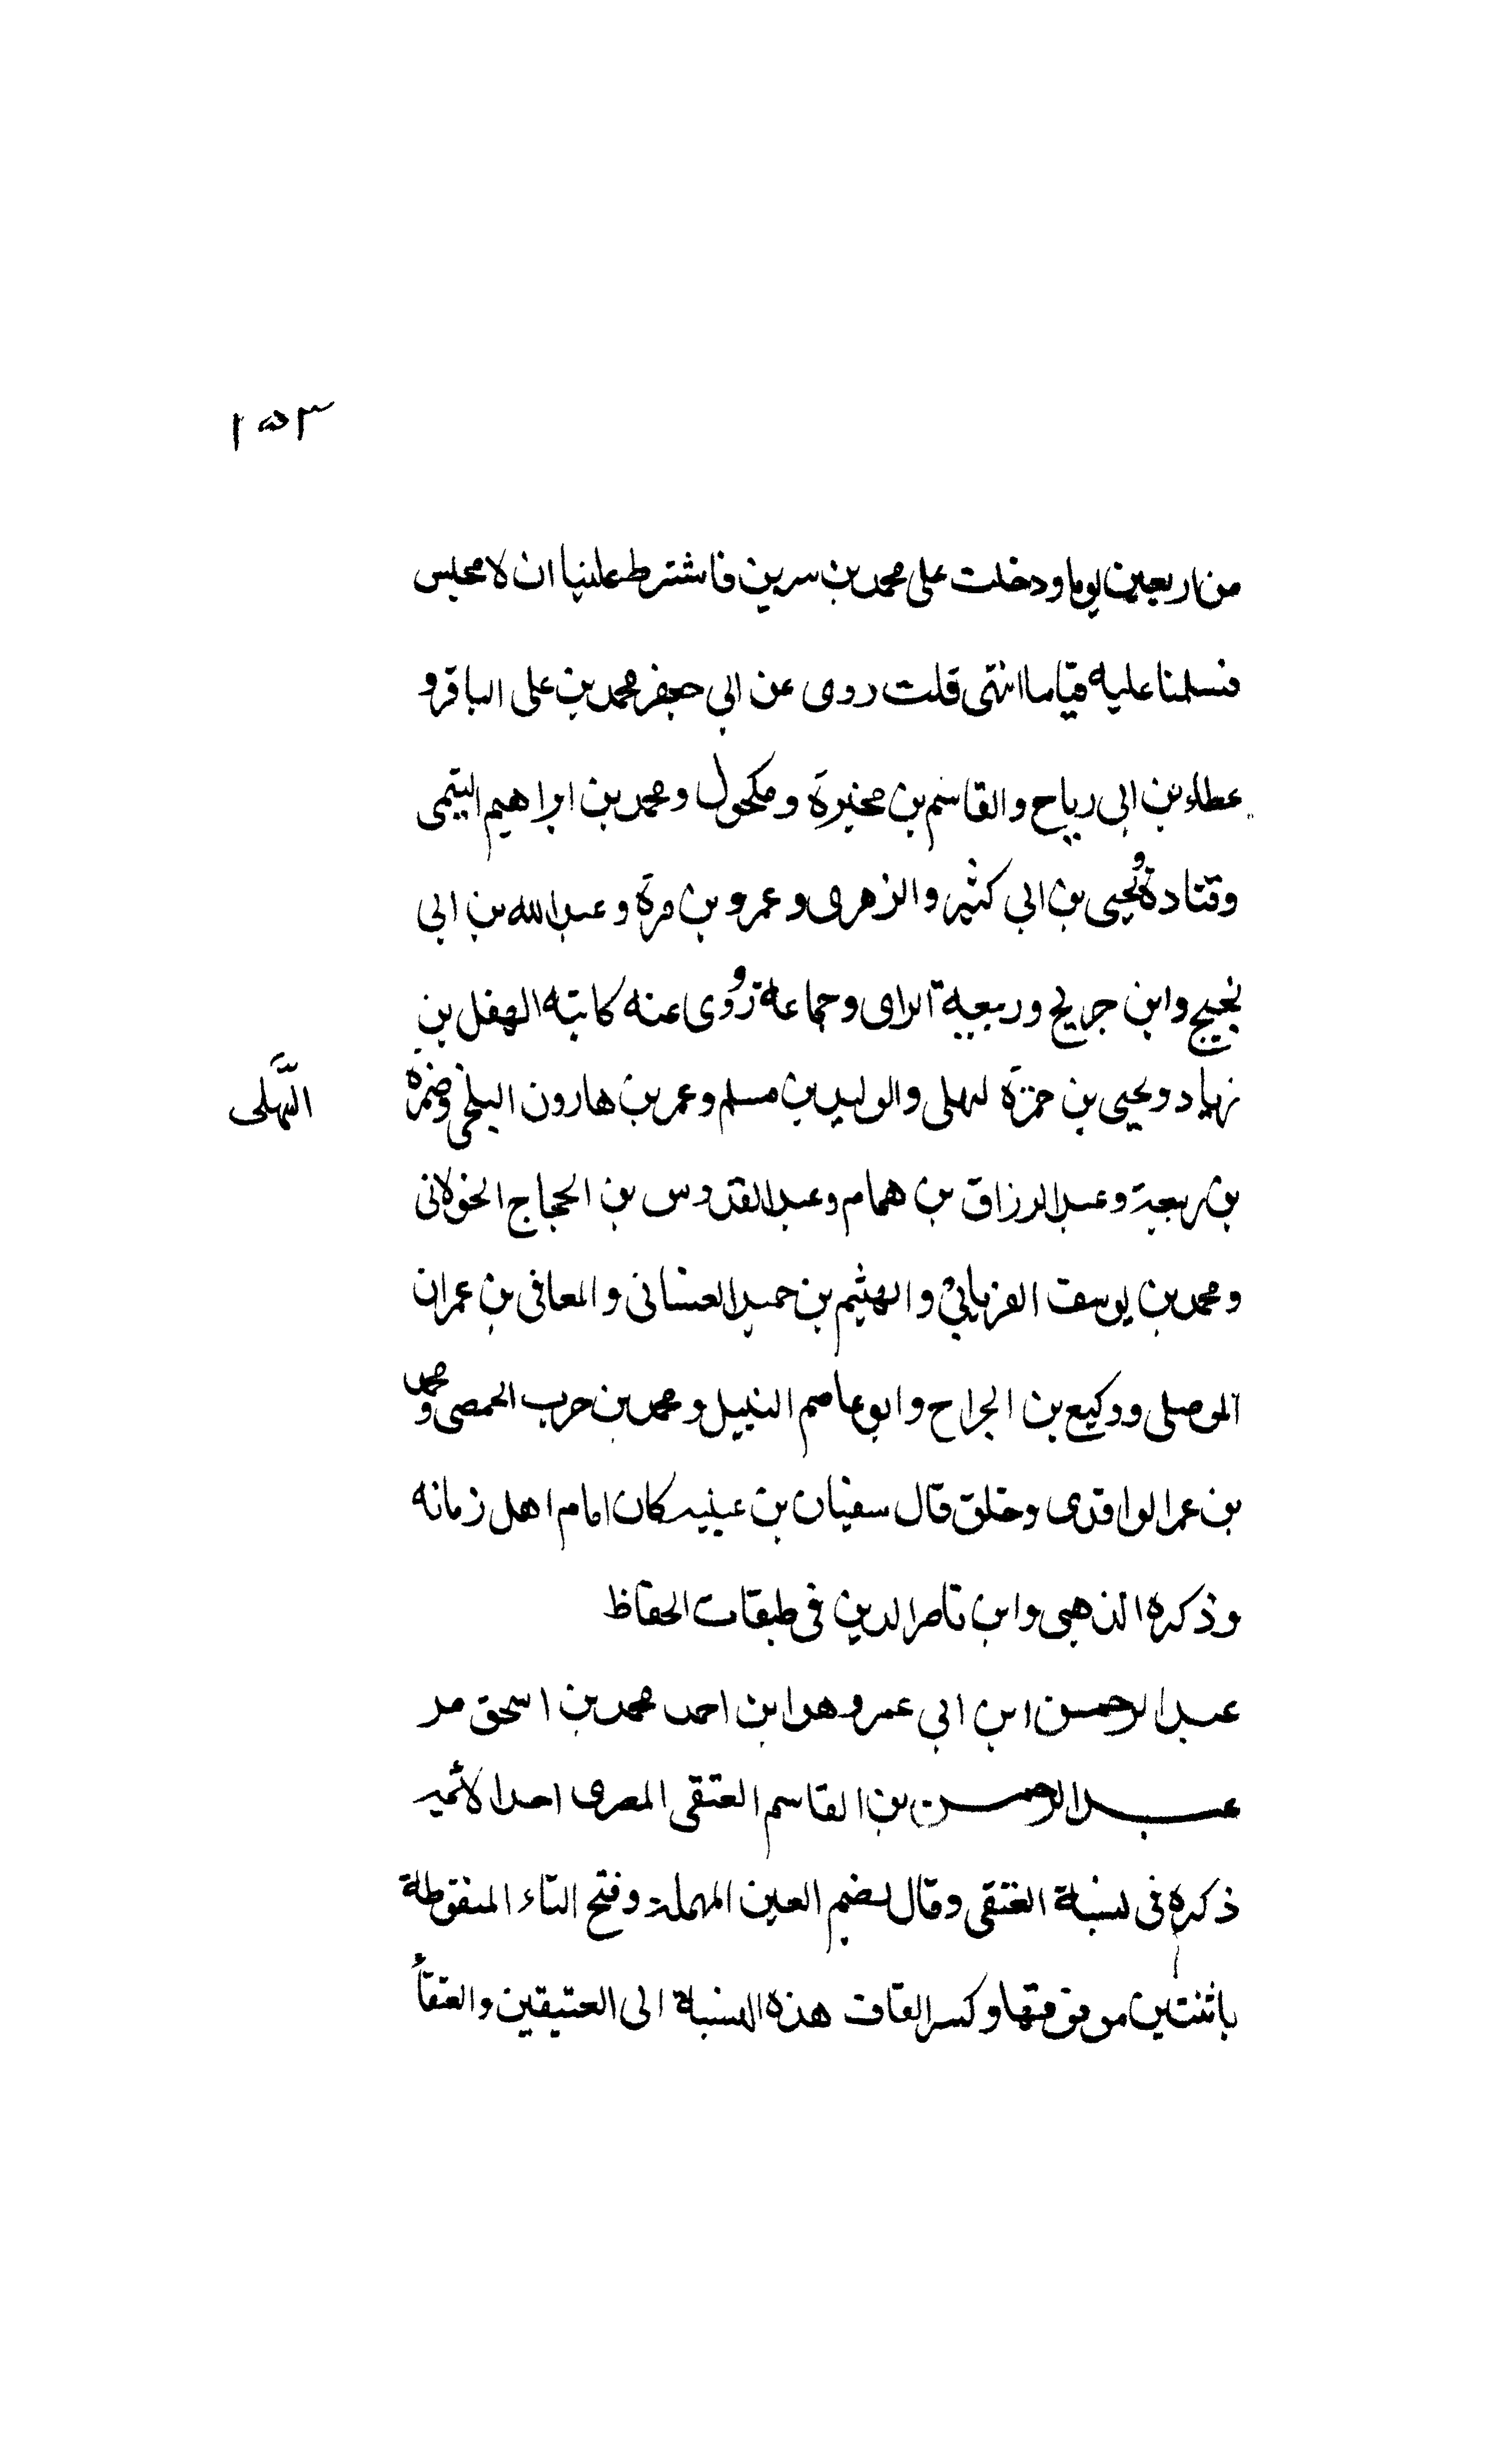 ١٥٣
من اربعين يوما ودخلت على محمد بن سرين فاشترط علينا ان لا نجلس
فسلمنا عليه قياما انتهى قلت روى عن ابي جعفر محمد بن على الباقر و
عطاء بن ابى رباح والقاسم بن مخيرة ومكحول ومحمد بن ابراهيم التيمى
وقتادة ويحيى بن ابي كثير والزهرى وعمرو بن مرة وعبد الله بن ابى
نجيح وابن جريج وربيعة الراى وجماعة وروى عنه كاتبه الهقل بن
زياد ويحيى بن حمزة لبهلى والوليد بن مسلم وعمر بن هارون البلخى وضمرة
البهلى
بن ربيعة وعبد الرزاق بن همام وعبد القدوس بن الحجاج الخولانى
ومحمد بن يوسف الفريابي والهيثم بن حميد الغسانى والمعافى بن عمران
الموصلى ووكيع بن الجراح وابو عاصم النبيل ومحمد بن حرب الحمصى ومحمد
بن عمر الواقدى وخلق قال سفيان بن عيينه كان امام اهل زمانه
وذكره الذهبى وابن ناصر الدين فى طبقات الحفاظ
عبد الرحمن ابن ابي عمرو هو ابن احمد محمد بن اسحق مر
عبد الرحمن بن القاسم العتقى المصرى احد الائمه
ذكره فى نسبة العتقى وقال بضم العين المهملة وفتح التاء المنقوطة
باثنتين من فوقها وكسر القاف هذه النسبة الى العتيقين والعتقاء